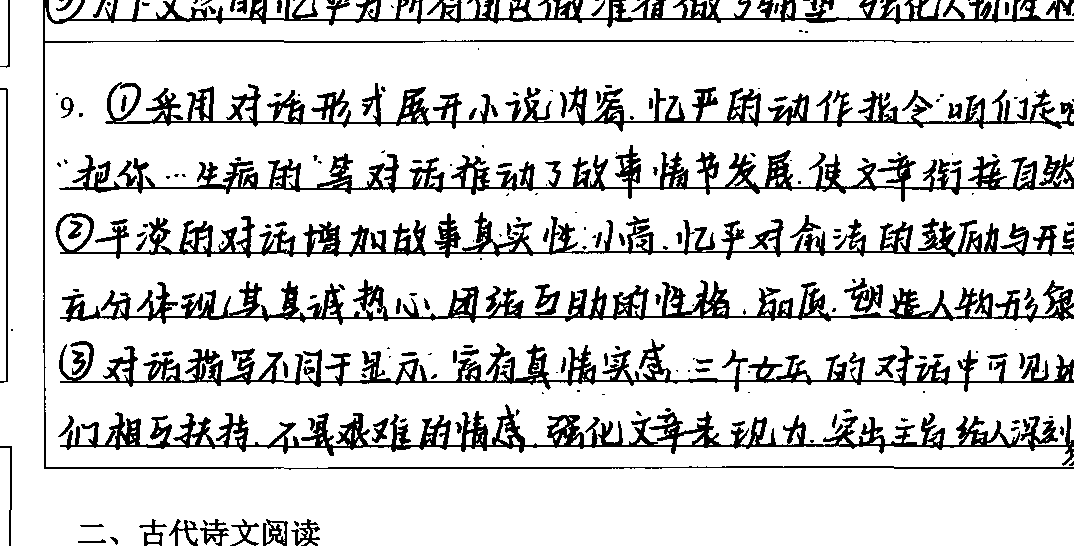 ③为下文点明忆平为所有角色做准备做了铺垫 强化人物性格
9. ①采用对话形式展开小说内容.忆严的动作指令"咱们走吧
"把你…生病的"等对话推动了故事情节发展.使文章衔接自然
②平淡的对话增加故事真实性.小高.忆严对俞洁的鼓励与开
充分体现其真诚热心.团结互助的性格.品质.塑造人物形象
③对话描写不同于显示.富有真情实感.三个女兵的对话中可见她
们相互扶持.不畏艰难的情感.强化文章表现力.突出主旨给人深刻
二、古代诗文阅读